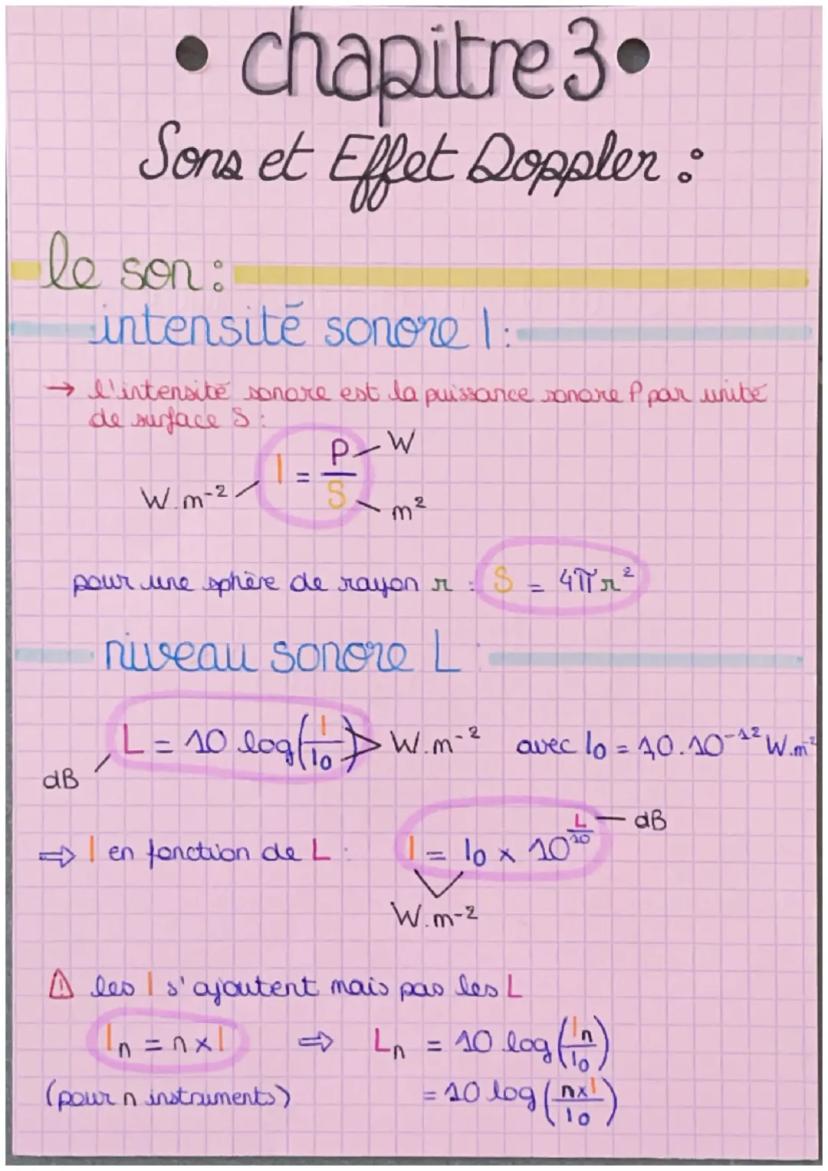 • chapitre 3 •
Sons et Effet Doppler :
le son :
intensité sonore I :
→ l'intensité sonore est la puissance sonore P par unité
de surface S :
W.m⁻² I = P/S W m²
pour une sphère de rayon r : S = 4πr²
niveau sonore L :
dB L = 10 log(I/I₀) W.m⁻² avec I₀ = 10.10⁻¹² W.m²
⇒ I en fonction de L : I = I₀ × 10^(L/10) dB
W.m⁻²
⚠ les I s'ajoutent mais pas les L
Iₙ = n×I ⇒ Lₙ = 10 log(Iₙ/I₀)
(pour n instruments) = 10 log(n×I/I₀)